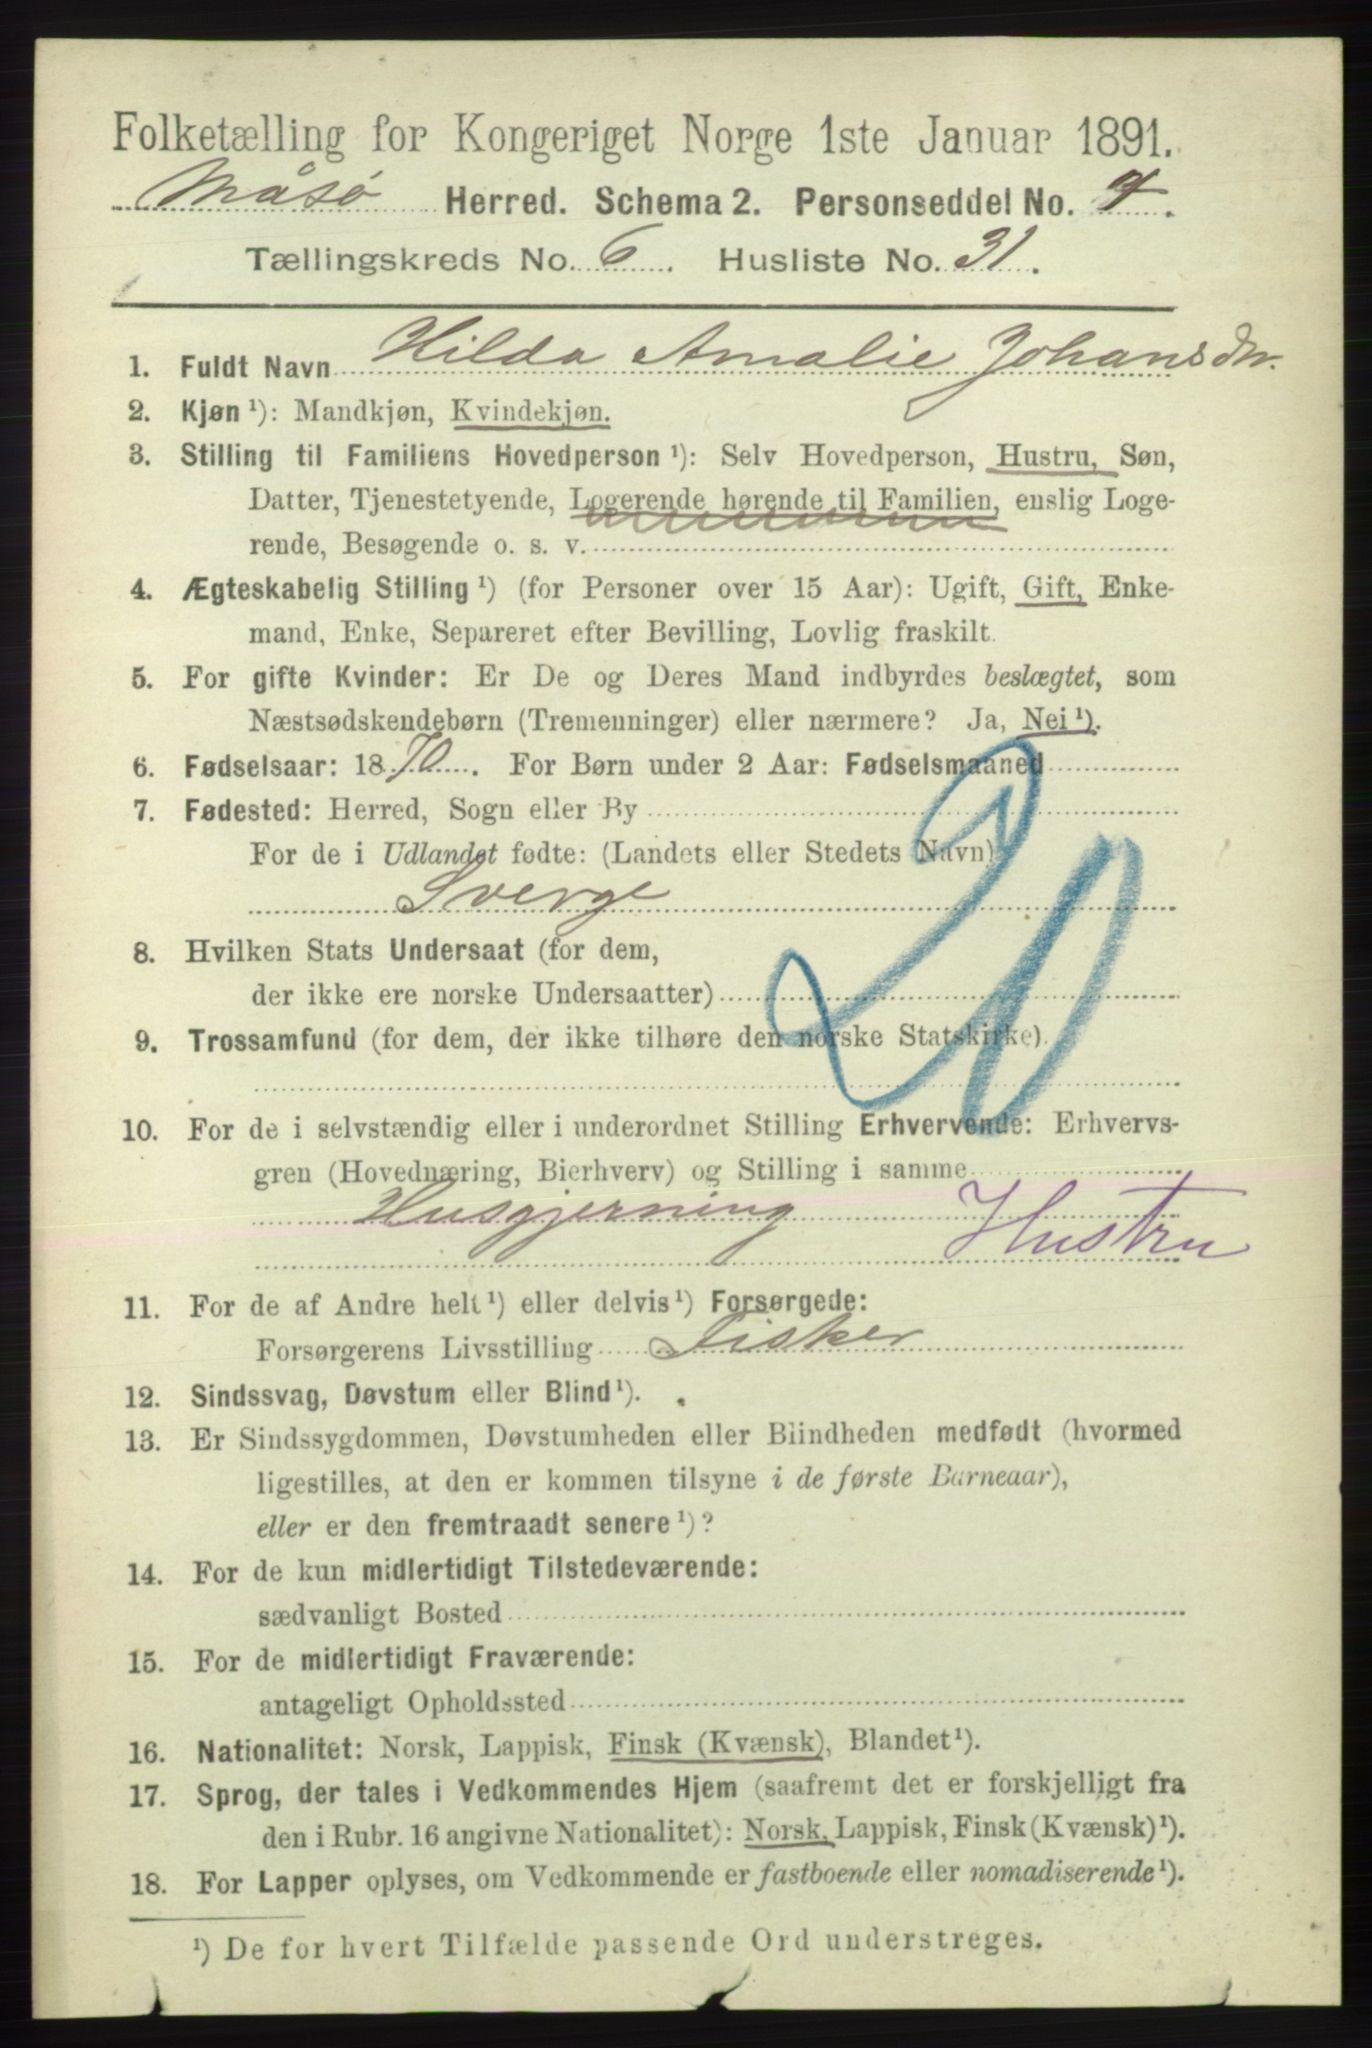 Folketælling for Kongeriget Norge 1ste Januar 1891.
Måsø Herred. Schema 2. Personseddel No. 4.
Tællingskreds No. 6. Husliste No. 31.
1. Fuldt Navn Hilda Amalie Johansdtr.
2. Kjøn ¹): Mandkjøn, Kvindekjøn.
3. Stilling til Familiens Hovedperson ¹): Selv Hovedperson, Hustru, Søn,
Datter, Tjenestetyende, Logerende hørende til Familien, enslig Loge-
rende, Besøgende o. s. v.
4. Ægteskabelig Stilling ¹) (for Personer over 15 Aar): Ugift, Gift, Enke-
mand, Enke, Separeret efter Bevilling, Lovlig fraskilt.
5. For gifte Kvinder: Er De og Deres Mand indbyrdes beslægtet, som
Næstsødskendebørn (Tremenninger) eller nærmere? Ja, Nei ¹).
6. Fødselsaar: 1870. For Børn under 2 Aar: Fødselsmaaned
7. Fødested: Herred, Sogn eller By
For de i Udlandet fødte: (Landets eller Stedets Navn)
Sverge
20
8. Hvilken Stats Undersaat (for dem,
der ikke ere norske Undersaatter)
9. Trossamfund (for dem, der ikke tilhøre den norske Statskirke).
10. For de i selvstændig eller i underordnet Stilling Erhvervende: Erhvervs-
gren (Hovednæring, Bierhverv) og Stilling i samme
Husgjerning Hustru
11. For de af Andre helt ¹) eller delvis ¹) Forsørgede:
Forsørgerens Livsstilling Fisker
12. Sindssvag, Døvstum eller Blind ¹).
13. Er Sindssygdommen, Døvstumheden eller Blindheden medfødt (hvormed
ligestilles, at den er kommen tilsyne i de første Barneaar),
eller er den fremtraadt senere ¹)?
14. For de kun midlertidigt Tilstedeværende:
sædvanligt Bosted
15. For de midlertidigt Fraværende:
antageligt Opholdssted
16. Nationalitet: Norsk, Lappisk, Finsk (Kvænsk), Blandet ¹).
17. Sprog, der tales i Vedkommendes Hjem (saafremt det er forskjelligt fra
den i Rubr. 16 angivne Nationalitet): Norsk, Lappisk, Finsk (Kvænsk) ¹).
18. For Lapper oplyses, om Vedkommende er fastboende eller nomadiserende ¹).
¹) De for hvert Tilfælde passende Ord understreges.